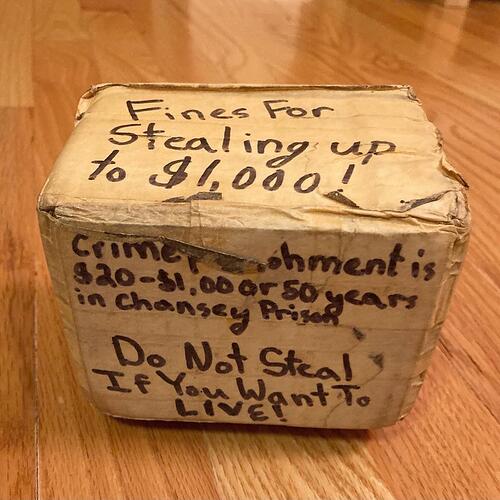 Fines For
Stealing up
to $1,000!
Crime ishment is
$20-$1,000 or 50 years
in Chansey Prison
Do Not Steal
If You Want To
LIVE!